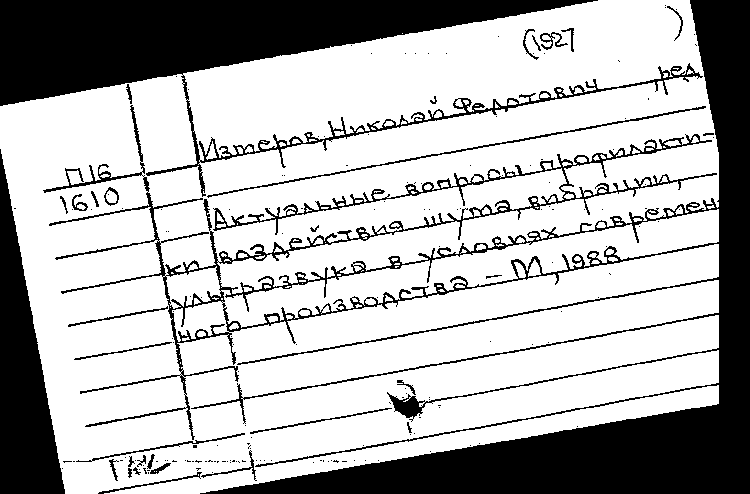 (1927 )
Измеров, Николай Федотович , ред.
П16
1610
Актуальные вопросы профилакти-
ки воздействия шума, вибрации,
ультразвука в условиях современ
ного производства - М, 1988